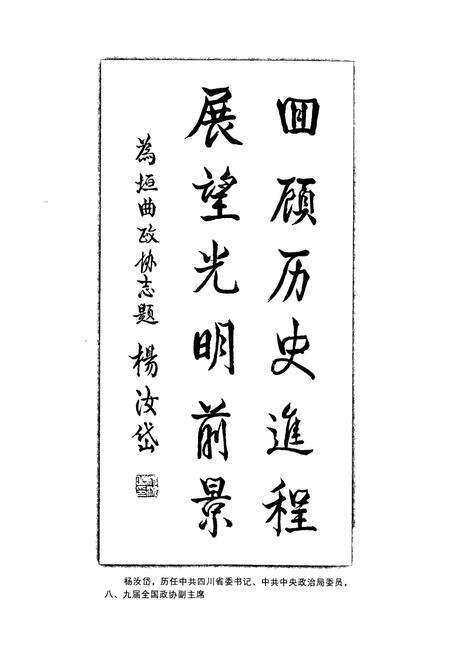 囬顾历史進程
展望光明前景
為垣曲政协志题 楊汝岱
杨汝岱，历任中共四川省委书记、中共中央政治局委员，
八、九届全国政协副主席